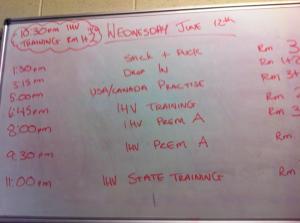 10:30am IHV
TRAINING RM 1+2
WEDNESDAY JUNE 12th
1:30pm STICK + PUCK Rm 3
3:15pm DROP IN Rm 1+2
5:00pm USA/CANADA PRACTISE Rm 3
6:45pm IHV TRAINING Rm
8:00pm IHV PREM A Rm
9:30pm IHV PREM A Rm
11:00pm IHV STATE TRAINING Rm